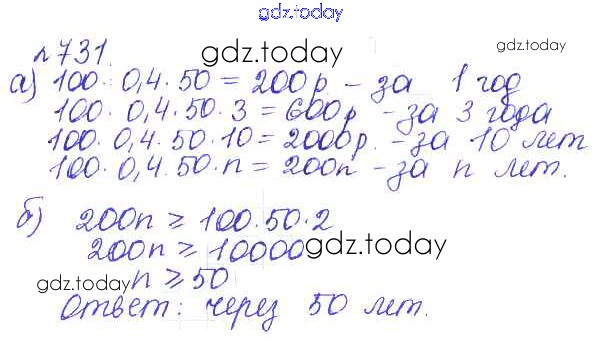 gdz.today
n 731. gdz.today gdz.today
а) 100 · 0,4 · 50 = 200р. - за 1 год
100 · 0,4 · 50 · 3 = 600р - за 3 года
100 · 0,4 · 50 · 10 = 2000р. - за 10 лет
100 · 0,4 · 50 · n = 200n - за n лет.
б) 200n ≥ 100 · 50 · 2
200n ≥ 10000 gdz.today
gdz.today n ≥ 50
Ответ: через 50 лет.